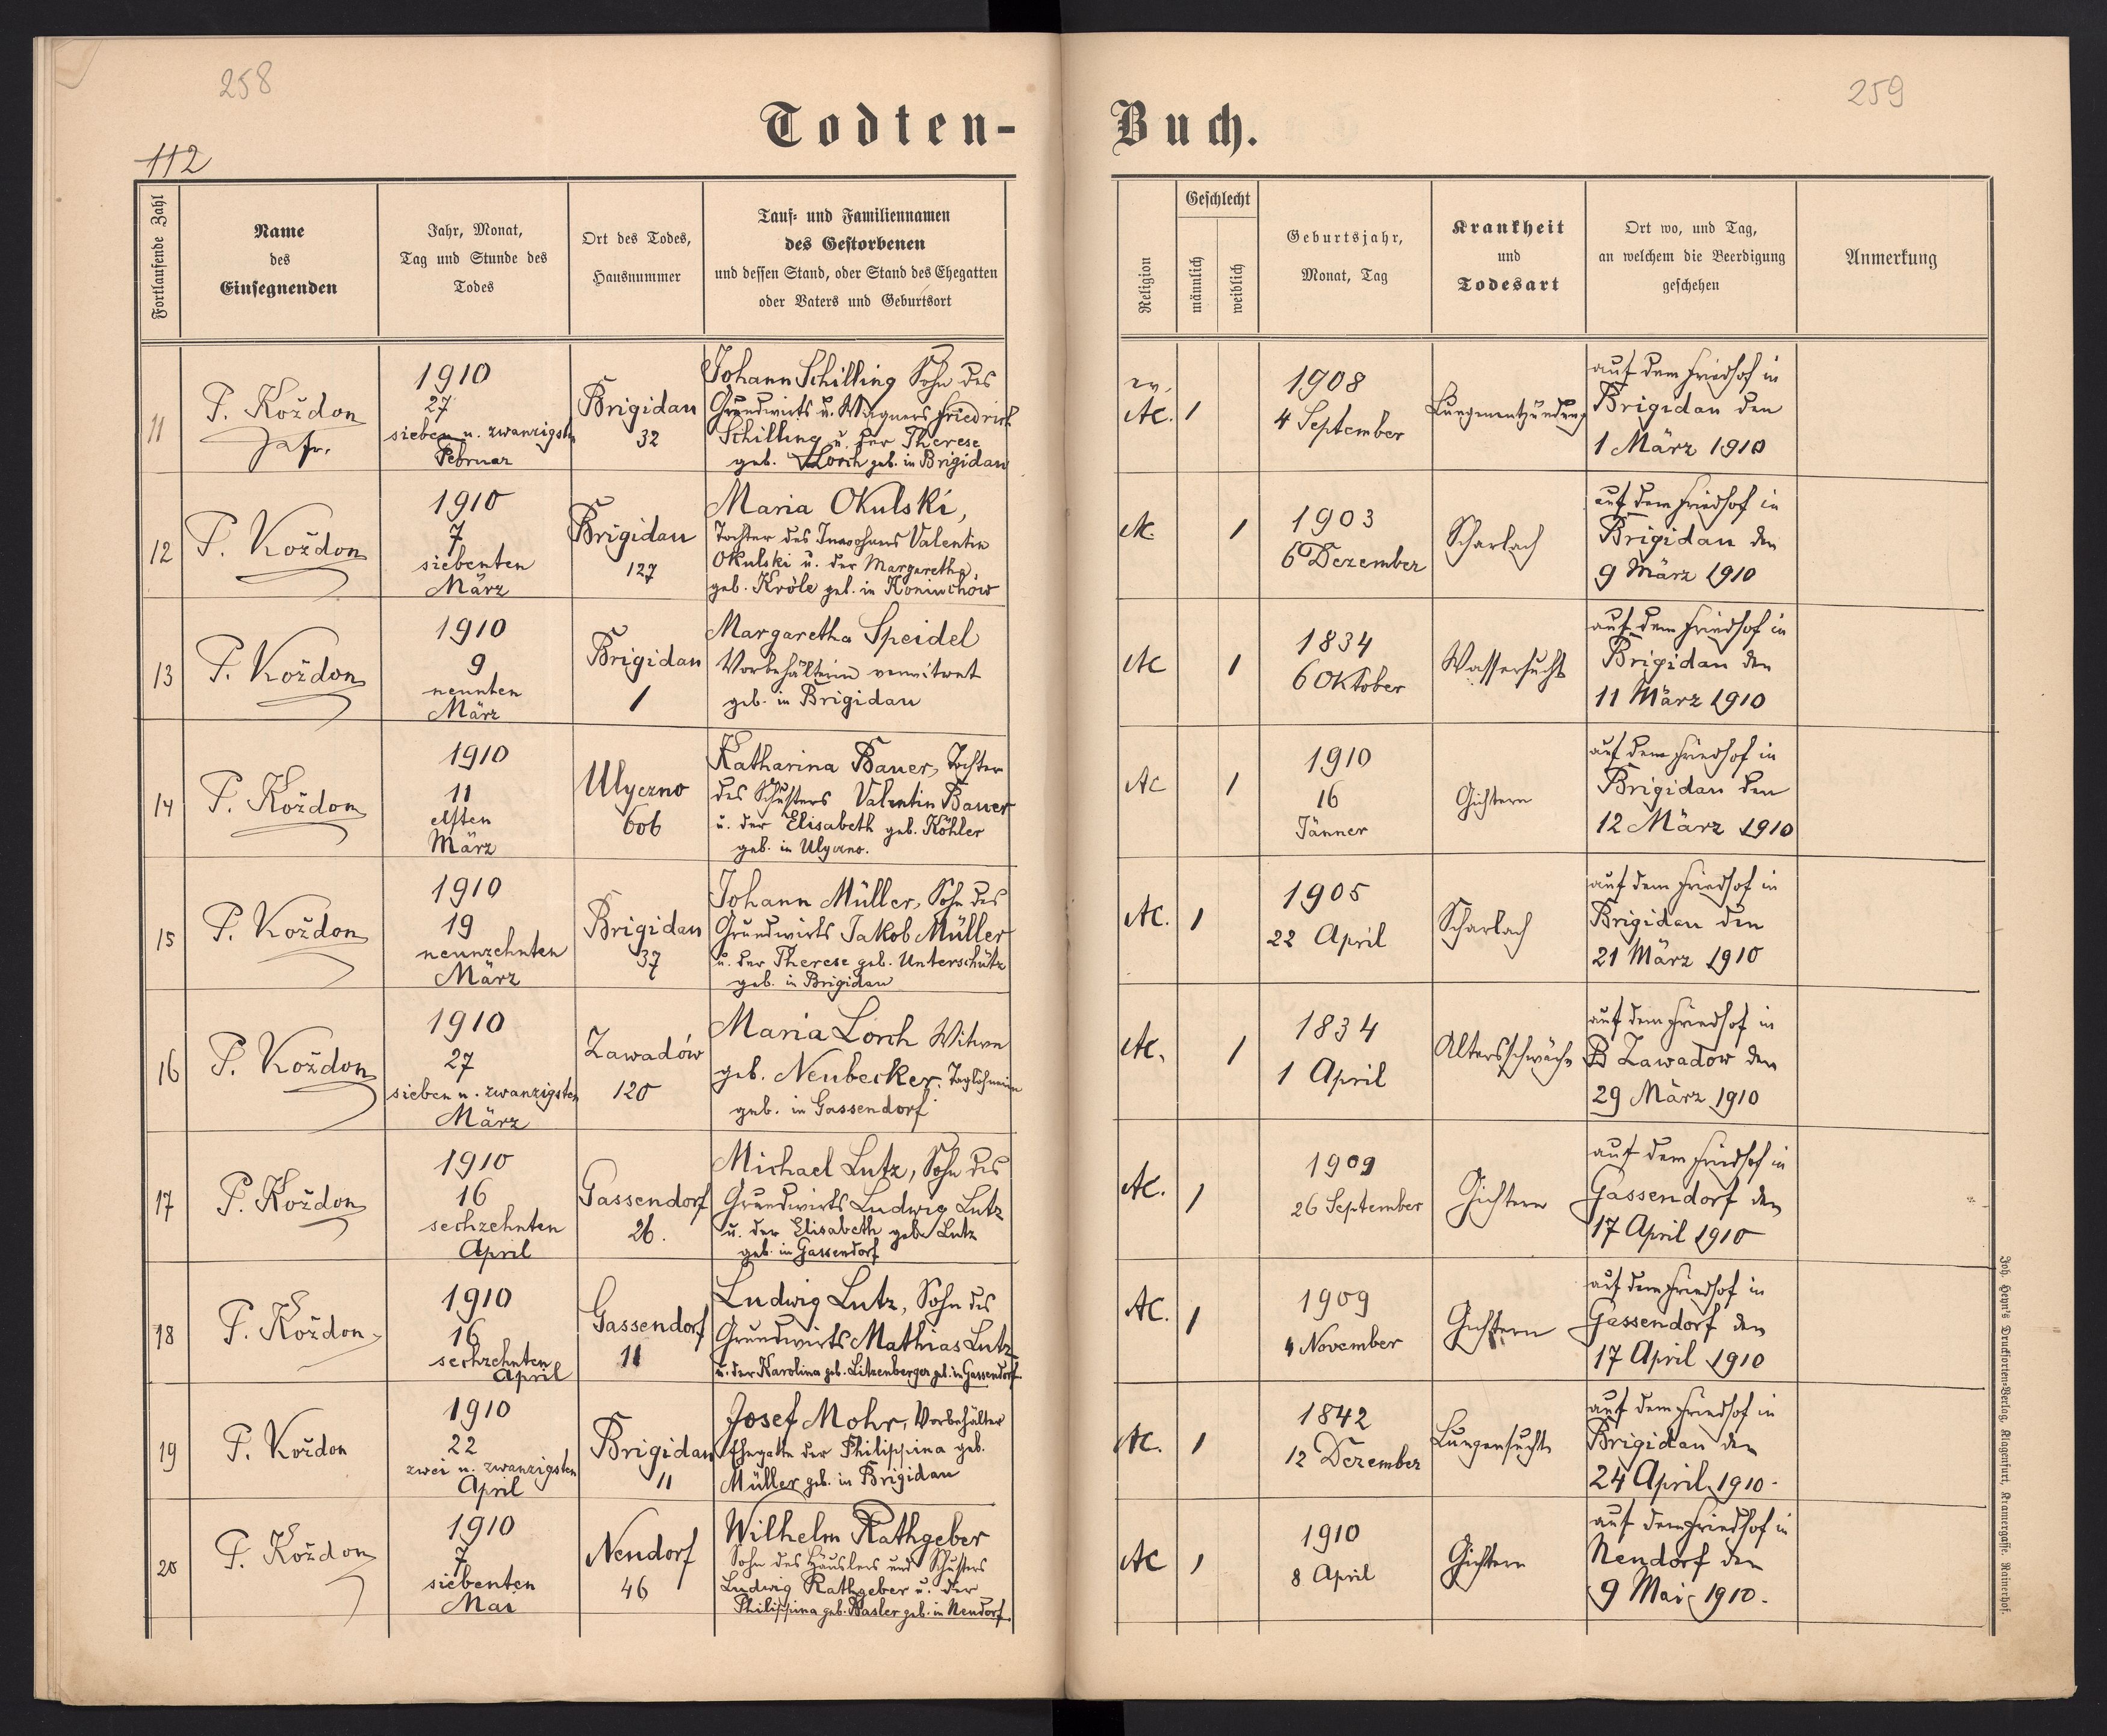 258
259
Todten-
Buch.
112
Fortlaufende Zahl
Name
des
Einsegnenden
Jahr, Monat,
Tag und Stunde des
Todes
Ort des Todes,
Hausnummer
Tauf= und Familiennamen
des Gestorbenen
und dessen Stand, oder Stand des Ehegatten
oder Vaters und Geburtsort
Religion
Geschlecht
männlich
weiblich
Geburtsjahr,
Monat, Tag
Krankheit
und
Todesart
Ort wo, und Tag,
an welchem die Beerdigung
geschehen
Anmerkung
11
P. Koždon
1910
27
sieben u. zwanzigsten
Februar
Brigidau
32
Johann Schilling Sohn des
Grundwirts u. Wagners Friedrich
Schilling u. der Therese
geb. Lorch geb. in Brigidau
ev.
AC. 1
1908
4 September
Lungenentzündung
auf dem Friedhof in
Brigidau den
1 März 1910
12
P. Koždon
1910
7
siebenten
März
Brigidau
127
Maria Okulski,
Tochter des Inwohners Valentin
Okulski u. der Margaretha
geb. Króle geb. in Koniuchów
AC. 1
1903
6 Dezember
Scharlach
auf dem Friedhof in
Brigidau den
9 März 1910
13
P. Koždon
1910
9
neunten
März
Brigidau
1
Margaretha Speidel
Vorbehälterin verwitwet
geb. in Brigidau
AC 1
1834
6 Oktober
Wassersucht
auf dem Friedhof in
Brigidau den
11 März 1910
14
P. Koždon
1910
11
elften
März
Ulyczno
606
Katharina Bauer, Tochter
des Schusters Valentin Bauer
u. der Elisabeth geb. Köhler
geb. in Ulyczno.
AC 1
1910
16
Jänner
Gichtern
auf dem Friedhof in
Brigidau den
12 März 1910
15
P. Koždon
1910
19
neunzehnten
März
Brigidau
37
Johann Müller, Sohn des
Grundwirts Jakob Müller
u. der Therese geb. Unterschütz
geb. in Brigidau
AC. 1
1905
22 April
Scharlach
auf dem Friedhof in
Brigidau den
21 März 1910
16
P. Koždon
1910
27
sieben u. zwanzigsten
März
Zawadów
120
Maria Lorch Witwe
geb. Neubecker, Taglöhnerin
geb. in Gassendorf
AC. 1
1834
1 April
Altersschwäche
auf dem Friedhof in
Zawadow den
29 März 1910
17
P. Koždon
1910
16
sechzehnten
April
Gassendorf
26.
Michael Lutz, Sohn des
Grundwirts Ludwig Lutz
u. der Elisabeth geb. Lutz
geb. in Gassendorf
AC. 1
1909
26 September
Gichtern
auf dem Friedhof in
Gassendorf den
17 April 1910
18
P. Koždon
1910
16
sechzehnten
April
Gassendorf
11
Ludwig Lutz, Sohn des
Grundwirts Mathias Lutz
u. der Karolina geb. Litzenberger geb. in Gassendorf.
AC. 1
1909
4 November
Gichtern
auf dem Friedhof in
Gassendorf den
17 April 1910
19
P. Koždon
1910
22
zwei u. zwanzigsten
April
Brigidau
11
Josef Mohr, Vorbehälter
Ehegatte der Philippina geb.
Müller geb. in Brigidau
AC. 1
1842
12 Dezember
Lungensucht
auf dem Friedhof in
Brigidau den
24 April 1910.
20
P. Koždon
1910
7
siebenten
Mai
Neudorf
46
Wilhelm Rathgeber
Sohn des Häuslers und Schusters
Ludwig Rathgeber u. der
Philippina geb. Hasler geb. in Neudorf.
AC 1
1910
8 April
Gichtern
auf dem Friedhof in
Neudorf den
9 Mai 1910.
Joh. Heyn's Drucksorten=Verlag, Klagenfurt, Kramergasse. Rainerhof.